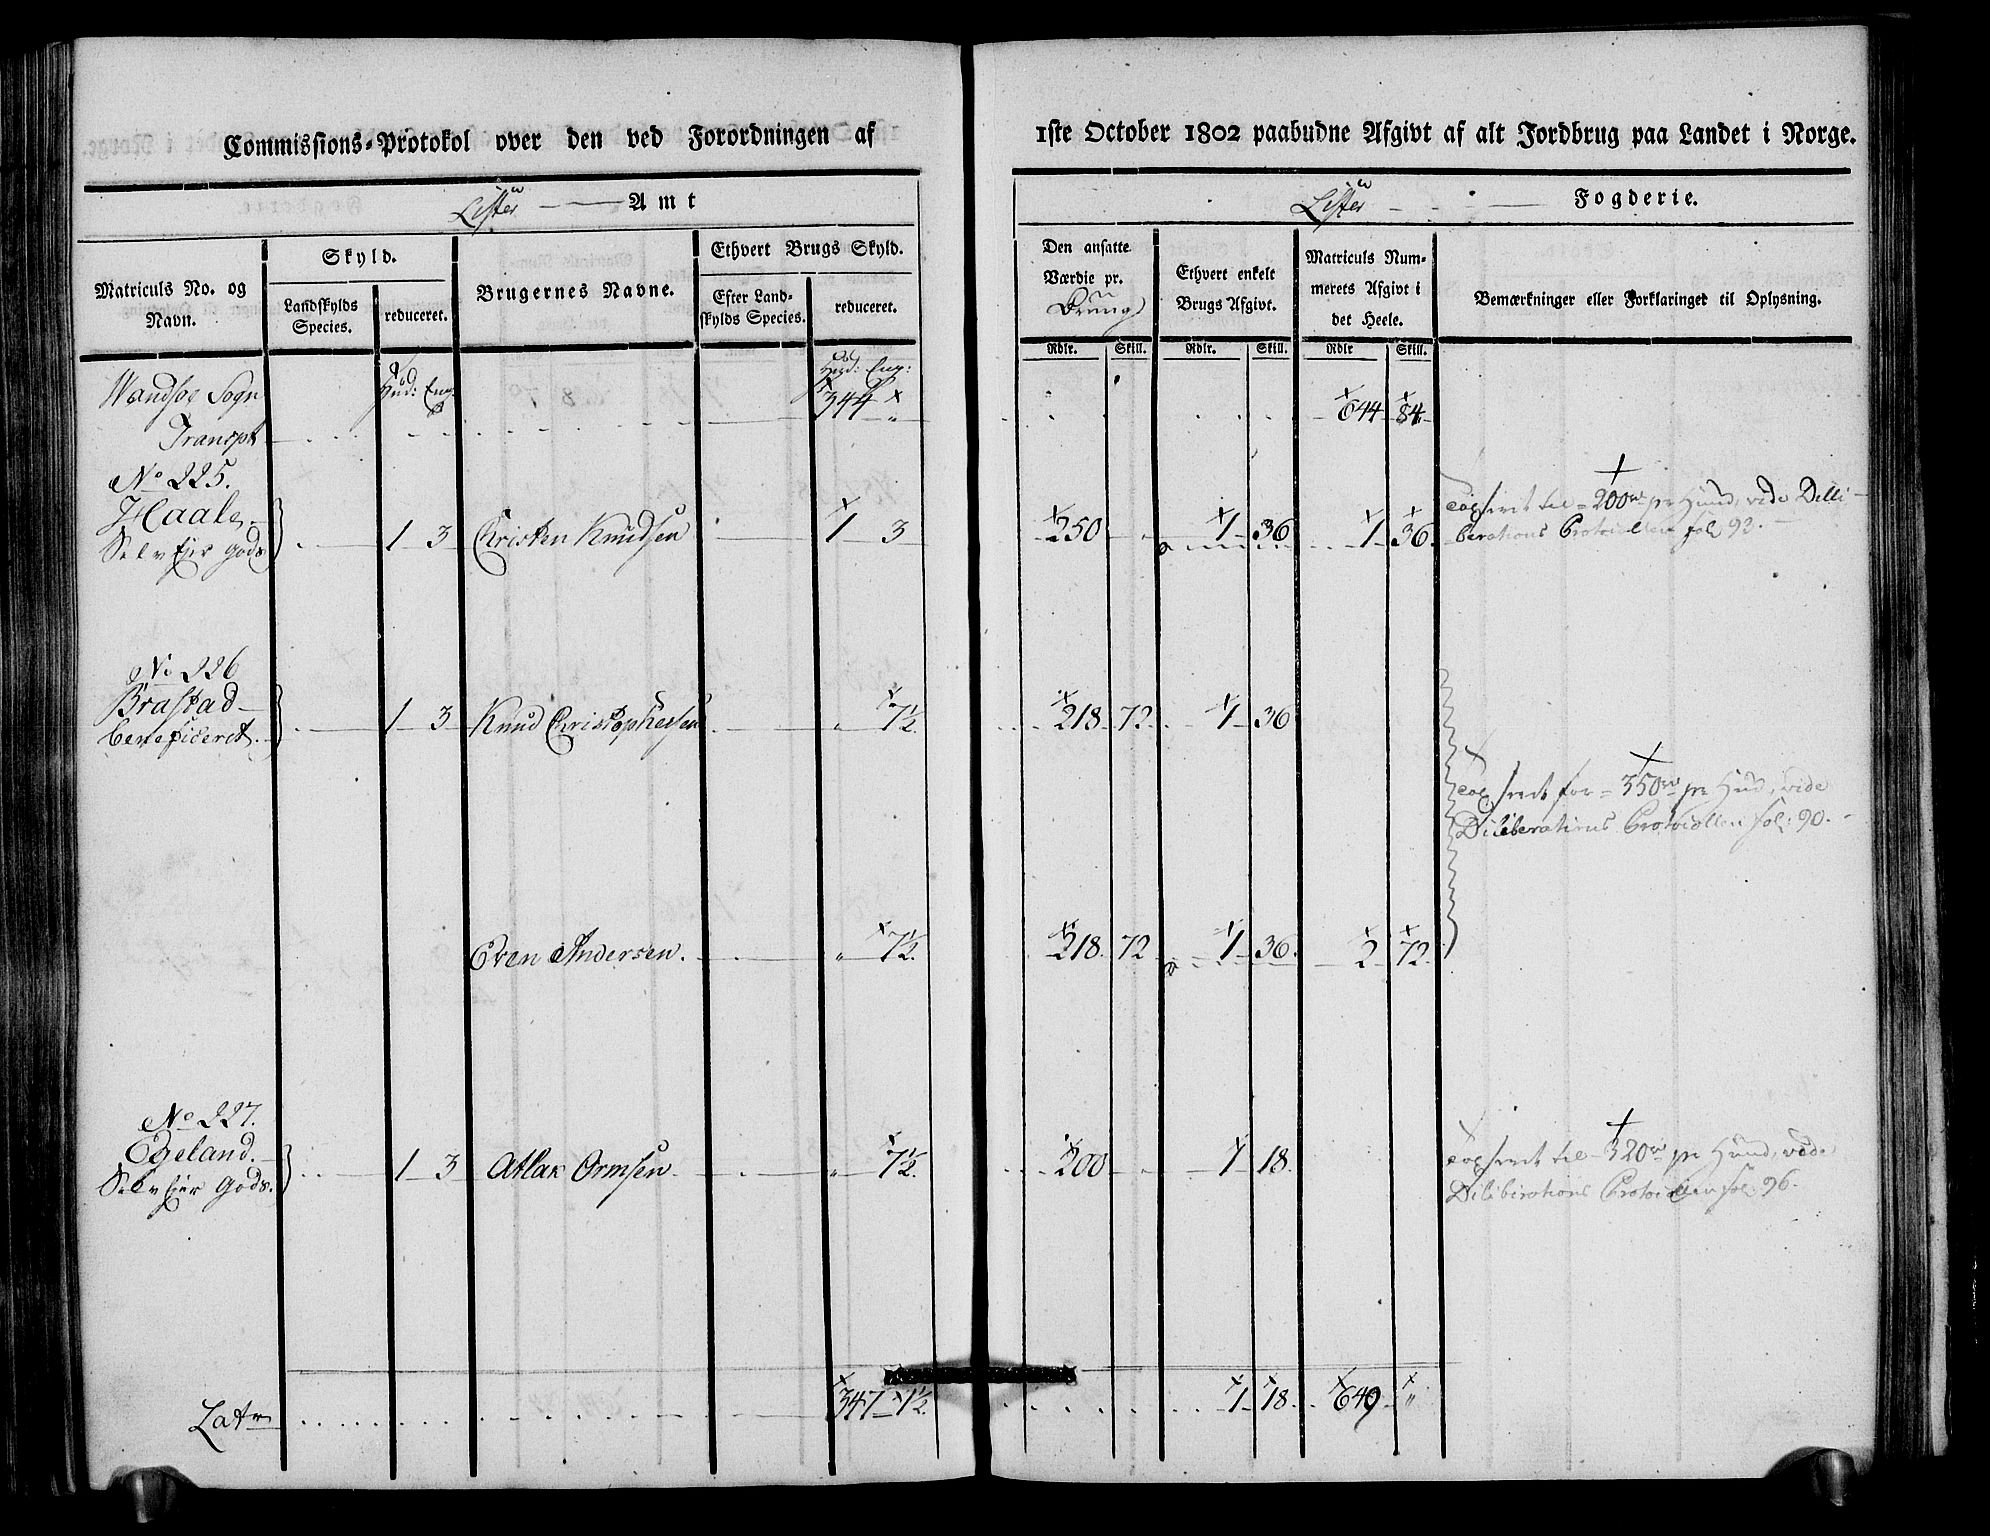 Commissions-Protokol over den ved Forordningen af
1ste October 1802 paabudne Afgivt af alt Jordbrug paa Landet i Norge.
Lister Amt
Lister Fogderie.
Matriculs No. og Navn.
Skyld.
Landskylds Species.
reduceret.
Brugernes Navne.
Ethvert Brugs Skyld.
Efter Landskylds Species.
reduceret.
Den ansatte Værdie pr. Brug
Ethvert enkelt Brugs Afgivt.
Matriculs Nummerets Afgivt i det Heele.
Bemærkninger eller Forklaringer til Oplysning.
Rdlr. Skill. Rdlr. Skill. Rdlr Skill.
Hud: Eng: Hud: Eng:
Wandsøe Sogn
Transpt 344 " 644 84
No 225.
Haale
Selv Ejer Gods 1 3 Christen Knudsen 1 3 250 1 36 1 36 til 200 rd pr Hud, vide Deli-
berations Protocollen fol 92.
No 226
Brastad
beneficeret 1 3 Knud Christophersen " 7½ 218 72 1 36
for 350 rd pr Hud, vide
Deliberations Protocollen fol: 90.
Even Andersen. " 7½ 218 72 1 36 2 72
No 227.
Egeland.
Selv Ejer Gods. 1 3 Atlak Ormsen " 7½ 200 1 18 til 320 rd pr Hud, vide
Deliberations Protocollen fol: 96.
Latr 347 1½ 1 18 649 "